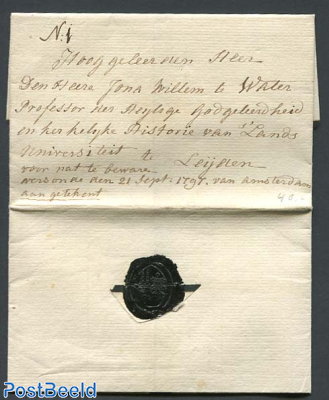 N. 1
Hoog geleerden Heer
Den Heere Jona Willem te Water
Professor der Heylige Godgeleerdheid
en kerkelijke Historie van 's Lands
Universiteit te Leijden
voor nat te bewaren
versonde den 21 Sept. 1797. van amsterdam
aan getekent
PostBeeld